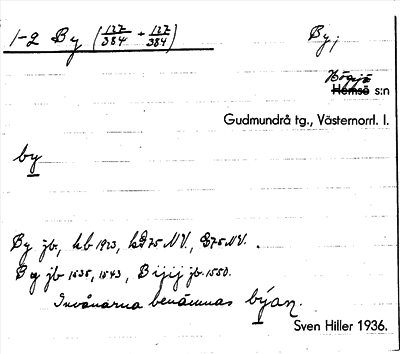 1-2 By (137/384 + 137/384)
By,
Högsjö
Hemsö s:n
Gudmundrå tg., Västernorrl. l.
by
By jb, kb 1923, kD75 NV., G75 NV.
By jb 1535, 1543, Bijij jb 1550.
Invånarna benämnas býan.
Sven Hiller 1936.